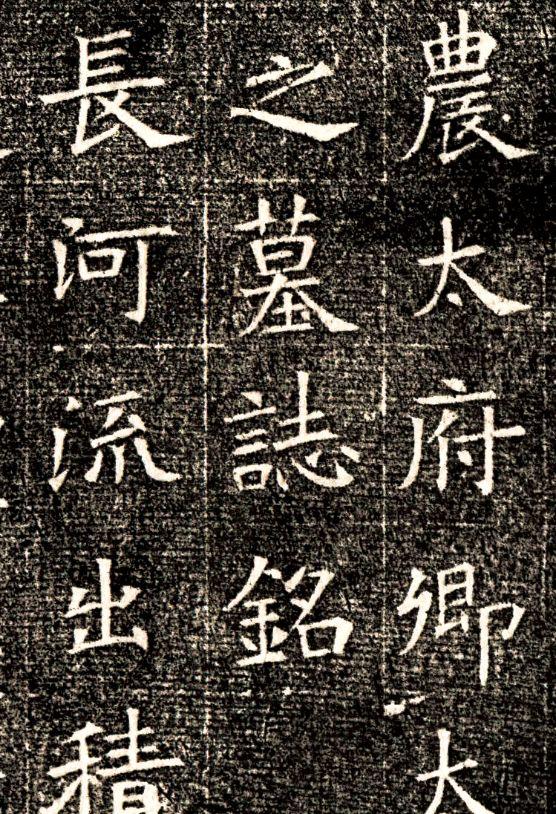 農太府卿太
之墓誌銘
長河流出積